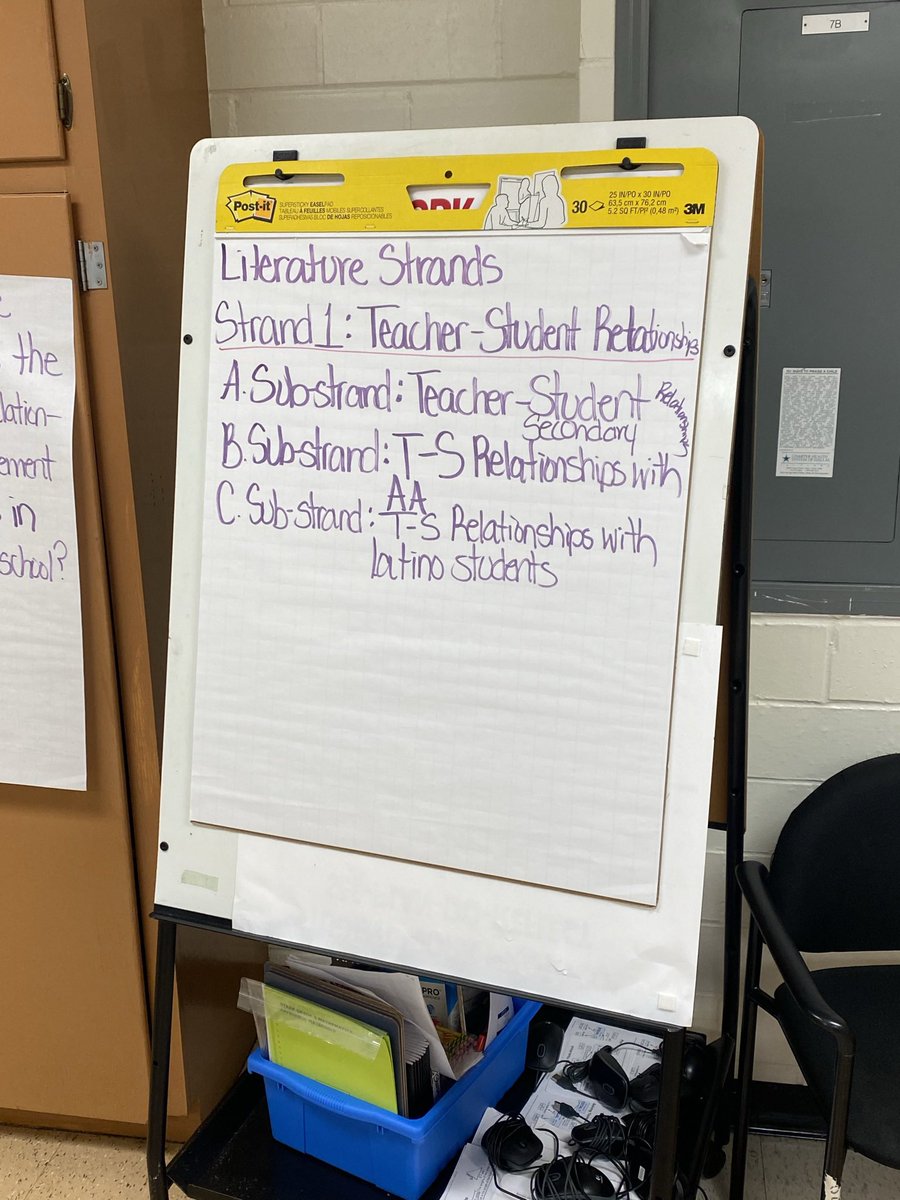 7B
Post-it
SUPERSTICKY EASEL PAD
TABLEAU À FEUILLES MOBILES SUPER COLLANTES
SUPERADHESIVAS BLOC DE HOJAS REPOSICIONABLES
30
25 IN/PO x 30 IN/PO
63,5 cm x 76,2 cm
5.2 SQ FT/PI² (0,48 m²)
3M
Literature Strands
Strand 1: Teacher-Student Relationships
A. Sub-strand: Teacher-Student Relationships
Secondary
B. Sub-strand: T-S Relationships with
AA
C. Sub-strand: T-S Relationships with
latino students
the
lation-
ement
in
school?
PRO